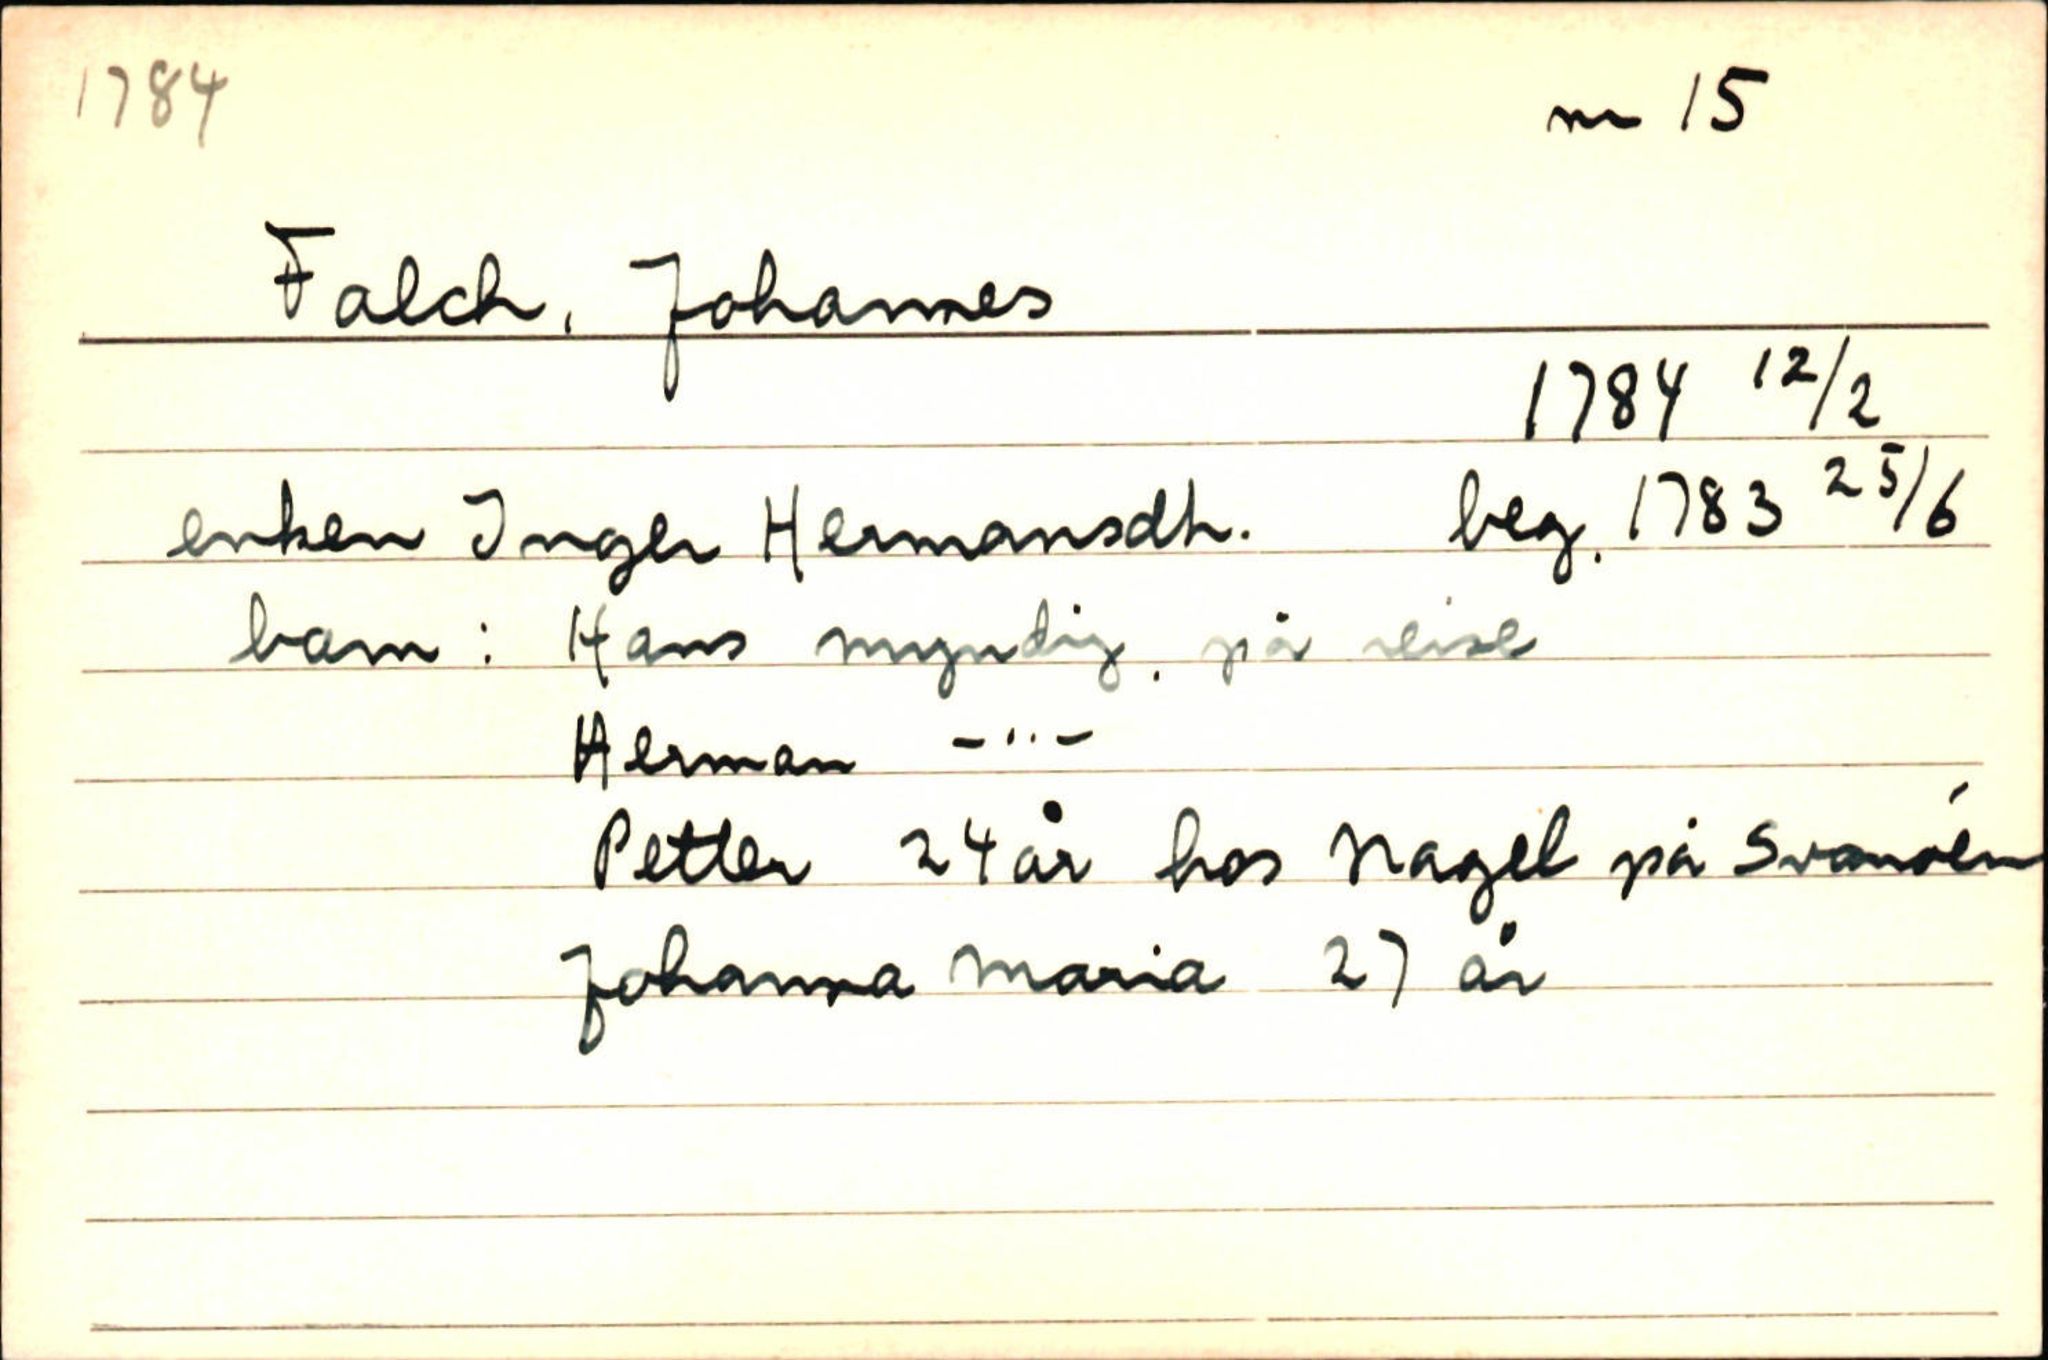 1784 nr 15
Falch, Johannes
1784 12/2
enken Inger Hermansdtr. beg. 1783 25/6
barn : Hans myndig, på reise
Herman -"-
Petter 24 år hos Nagel på Svanøen
Johanna Maria 27 år